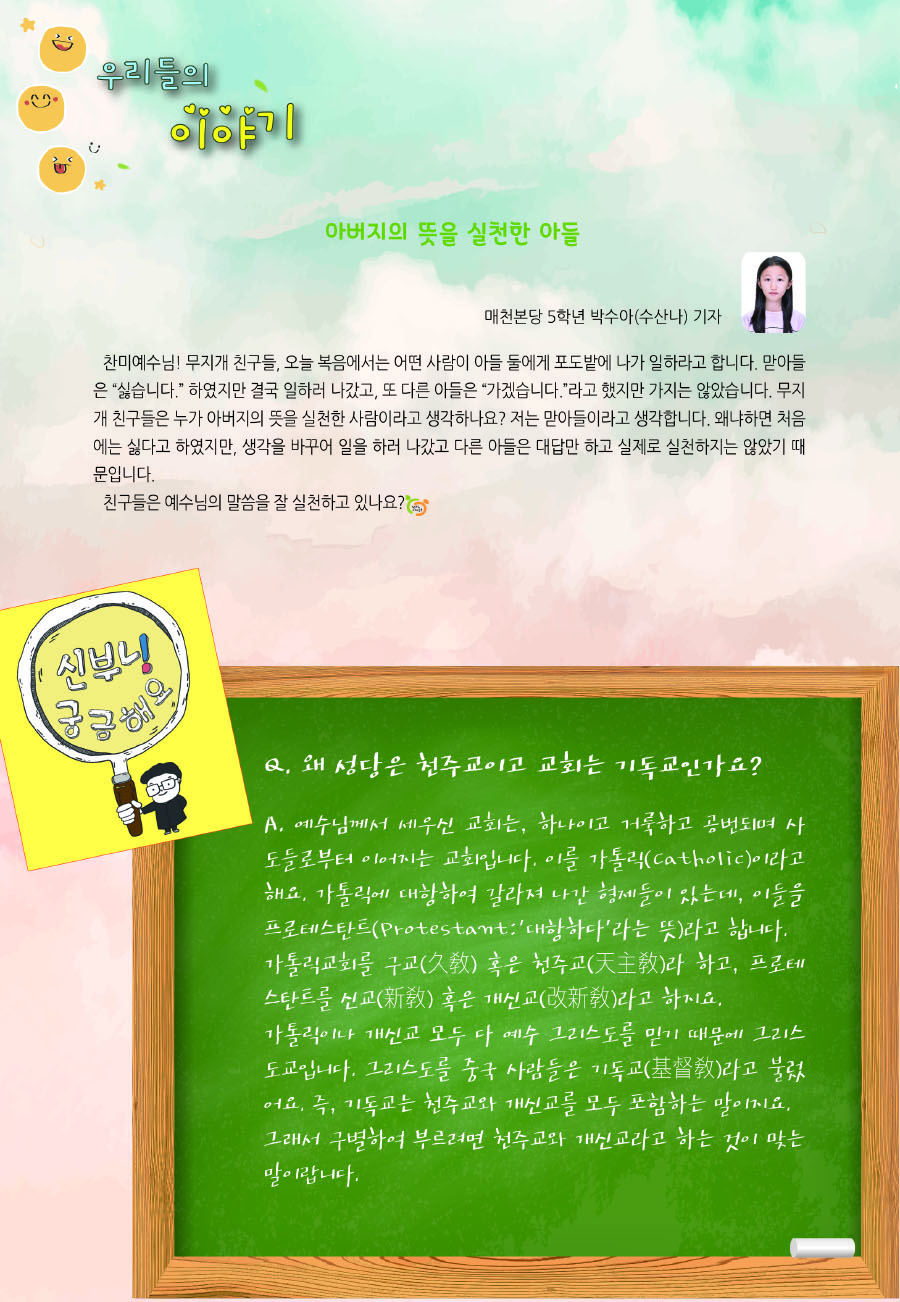 우리들의
이야기
아버지의 뜻을 실천한 아들
매천본당 5학년 박수아(수산나) 기자
찬미예수님! 무지개 친구들, 오늘 복음에서는 어떤 사람이 아들 둘에게 포도밭에 나가 일하라고 합니다. 맏아들
은 “싫습니다.” 하였지만 결국 일하러 나갔고, 또 다른 아들은 “가겠습니다.”라고 했지만 가지는 않았습니다. 무지
개 친구들은 누가 아버지의 뜻을 실천한 사람이라고 생각하나요? 저는 맏아들이라고 생각합니다. 왜냐하면 처음
에는 싫다고 하였지만, 생각을 바꾸어 일을 하러 나갔고 다른 아들은 대답만 하고 실제로 실천하지는 않았기 때
문입니다.
친구들은 예수님의 말씀을 잘 실천하고 있나요?
신부님!
궁금해요
Q. 왜 성당은 천주교이고 교회는 기독교인가요?
A. 예수님께서 세우신 교회는, 하나이고 거룩하고 공번되며 사
도들로부터 이어지는 교회입니다. 이를 가톨릭(Catholic)이라고
해요. 가톨릭에 대항하여 갈라져 나간 형제들이 있는데, 이들을
프로테스탄트(Protestant:'대항하다'라는 뜻)라고 합니다.
가톨릭교회를 구교(久敎) 혹은 천주교(天主敎)라 하고, 프로테
스탄트를 신교(新敎) 혹은 개신교(改新敎)라고 하지요.
가톨릭이나 개신교 모두 다 예수 그리스도를 믿기 때문에 그리스
도교입니다. 그리스도를 중국 사람들은 기독교(基督敎)라고 불렀
어요. 즉, 기독교는 천주교와 개신교를 모두 포함하는 말이지요.
그래서 구별하여 부르려면 천주교와 개신교라고 하는 것이 맞는
말이랍니다.